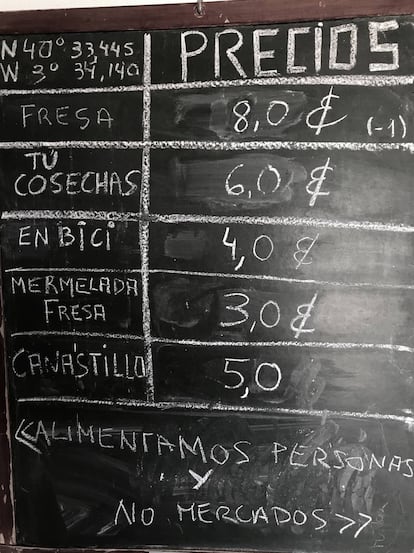 N 40º 33,445
W 3º 34,140
PRECIOS
FRESA 8,0 € (-1)
TÚ
COSECHAS 6,0 €
EN BICI 4,0 €
MERMELADA
FRESA 3,0 €
CANASTILLO 5,0
<<ALIMENTAMOS PERSONAS
Y
NO MERCADOS>>